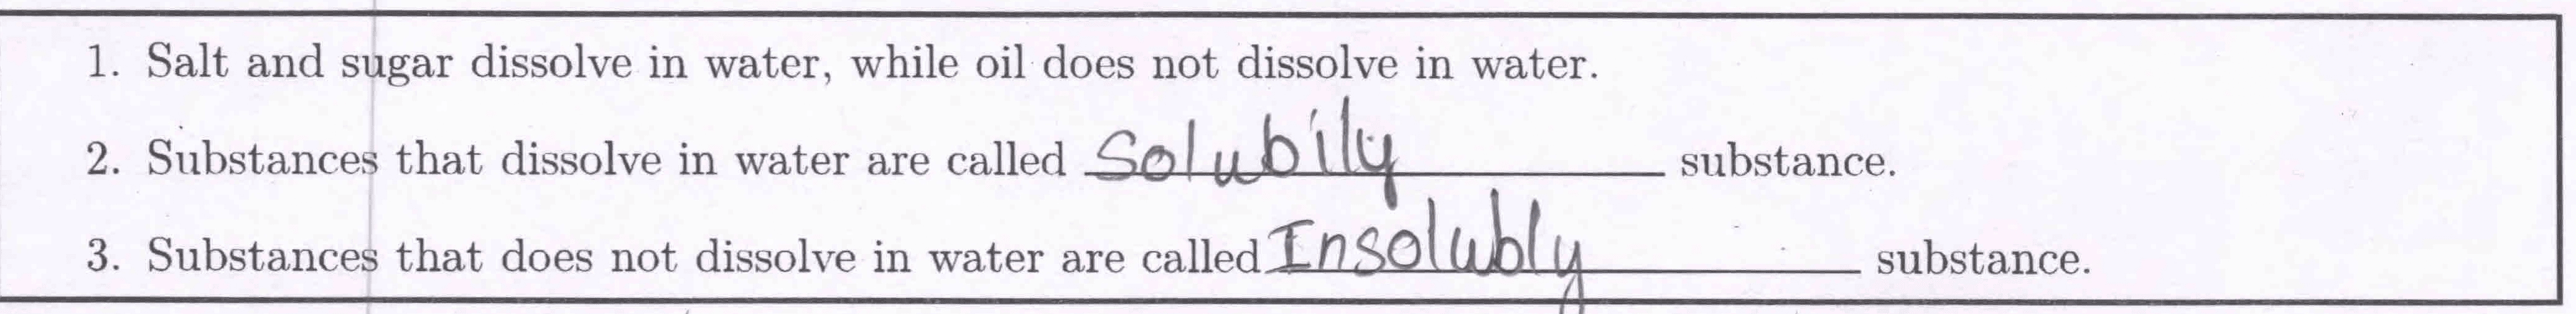 1. Salt and sugar dissolve in water, while oil does not dissolve in water.
2. Substances that dissolve in water are called Solubily substance.
3. Substances that does not dissolve in water are called Insolubly substance.